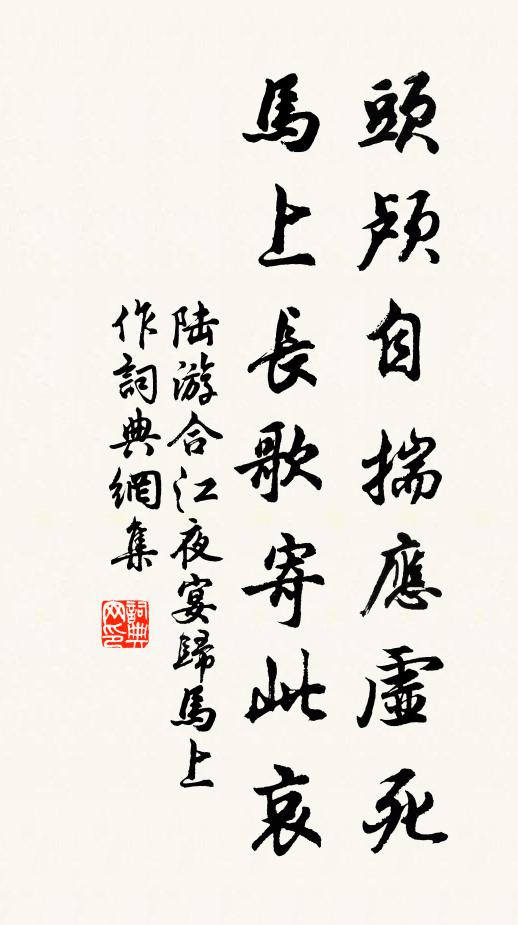 頭顱自揣應虛死
馬上長歌寄此哀
陆游合江夜宴歸馬上
作詞典網集
詞典
网印